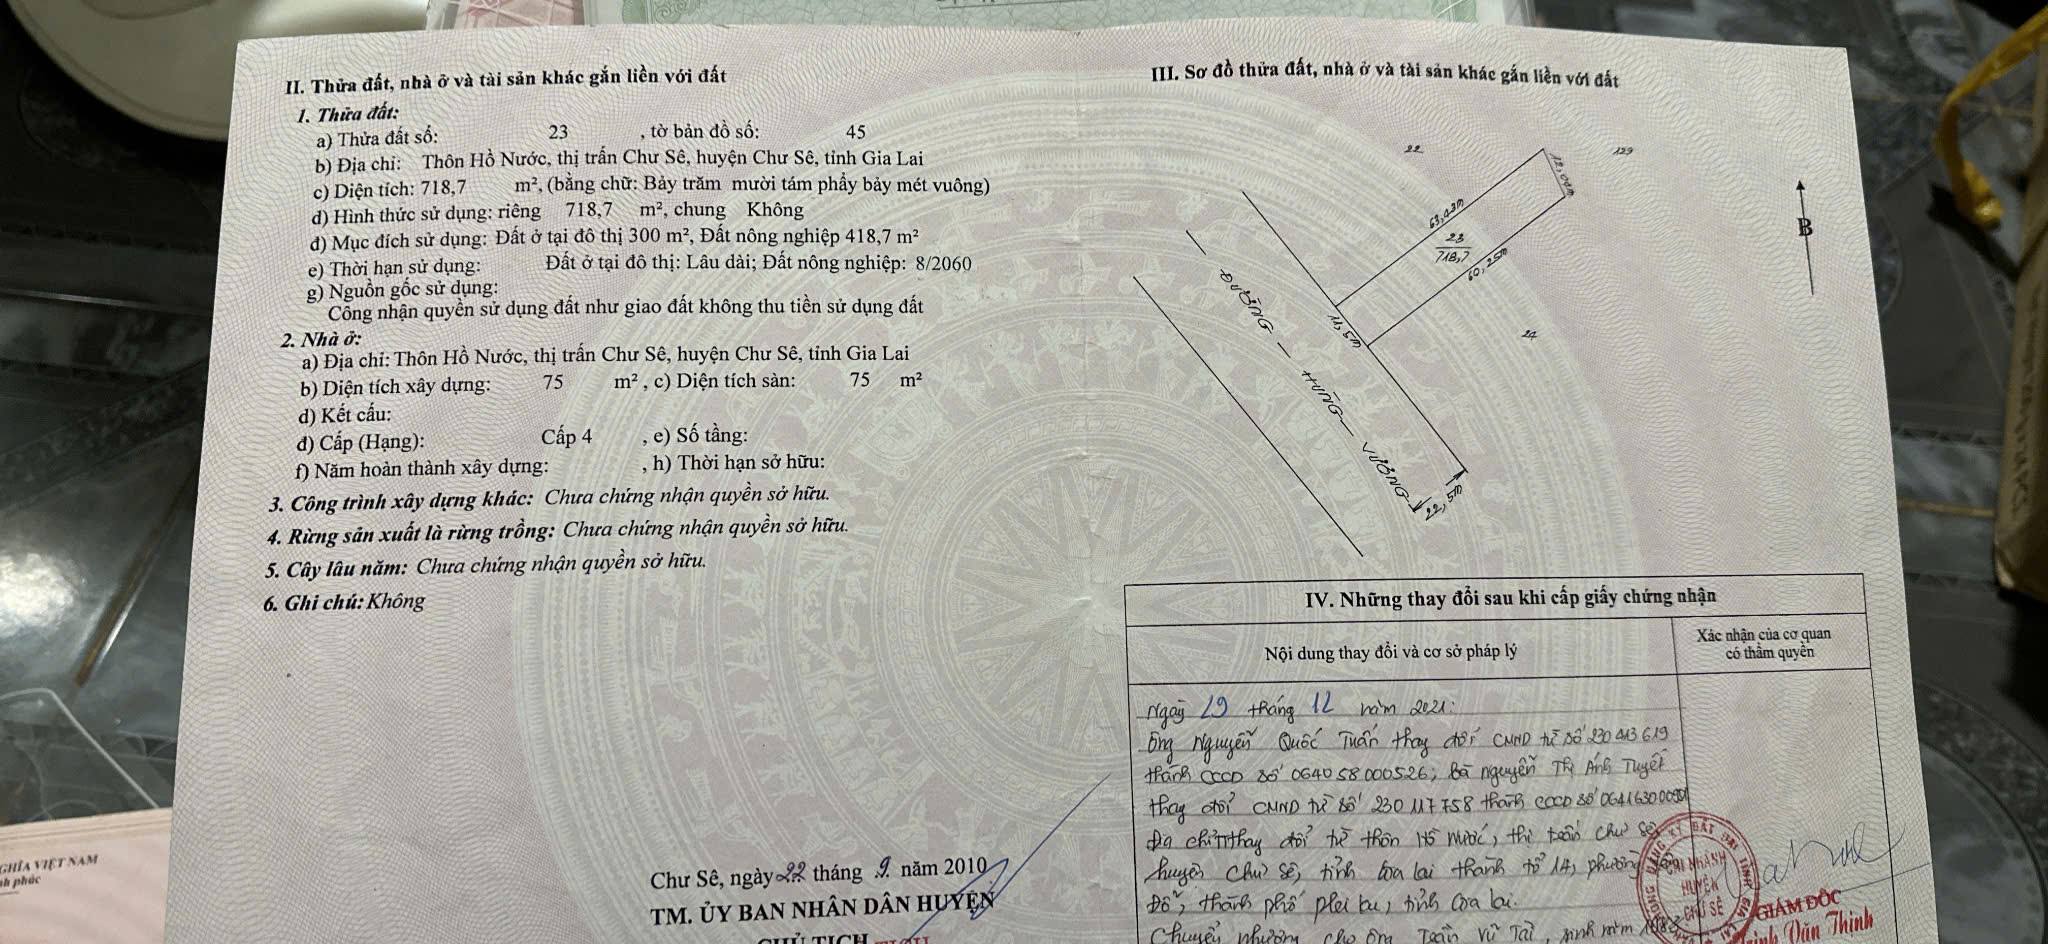 II. Thửa đất, nhà ở và tài sản khác gắn liền với đất
1. Thửa đất:
a) Thửa đất số: 23 , tờ bản đồ số: 45
b) Địa chỉ: Thôn Hồ Nước, thị trấn Chư Sê, huyện Chư Sê, tỉnh Gia Lai
c) Diện tích: 718,7 m², (bằng chữ: Bảy trăm mười tám phẩy bảy mét vuông)
d) Hình thức sử dụng: riêng 718,7 m², chung Không
đ) Mục đích sử dụng: Đất ở tại đô thị 300 m², Đất nông nghiệp 418,7 m²
e) Thời hạn sử dụng: Đất ở tại đô thị: Lâu dài; Đất nông nghiệp: 8/2060
g) Nguồn gốc sử dụng:
Công nhận quyền sử dụng đất như giao đất không thu tiền sử dụng đất
2. Nhà ở:
a) Địa chỉ: Thôn Hồ Nước, thị trấn Chư Sê, huyện Chư Sê, tỉnh Gia Lai
b) Diện tích xây dựng: 75 m² , c) Diện tích sàn: 75 m²
d) Kết cấu:
đ) Cấp (Hạng): Cấp 4 , e) Số tầng:
f) Năm hoàn thành xây dựng: , h) Thời hạn sở hữu:
3. Công trình xây dựng khác: Chưa chứng nhận quyền sở hữu.
4. Rừng sản xuất là rừng trồng: Chưa chứng nhận quyền sở hữu.
5. Cây lâu năm: Chưa chứng nhận quyền sở hữu.
6. Ghi chú: Không
Chư Sê, ngày 22 tháng 9 năm 2010
TM. ỦY BAN NHÂN DÂN HUYỆN
CHỦ TỊCH
GHĨA VIỆT NAM
nh phúc
III. Sơ đồ thửa đất, nhà ở và tài sản khác gắn liền với đất
22
129
12,04m
63,43m
B
23
718,7
60,25m
11,5m
24
ĐƯỜNG HÙNG VƯƠNG
22,5m
IV. Những thay đổi sau khi cấp giấy chứng nhận
Nội dung thay đổi và cơ sở pháp lý
Xác nhận của cơ quan
có thẩm quyền
Ngày 29 tháng 12 năm 2021:
Ông Nguyễn Quốc Tuấn thay đổi CMND từ số 230413619
thành CCCD số 064058000526; Bà Nguyễn Thị Ánh Tuyết
thay đổi CMND từ số 230117758 thành CCCD số
Địa chỉ thay đổi từ thôn Hồ Nước, thị trấn Chư Sê
huyện Chư Sê, tỉnh Gia Lai thành tổ 14, phường
Đổ, thành phố Pleiku, tỉnh Gia Lai.
Chuyển nhượng cho ông Trần Vũ Tài, sinh năm
CHI NHÁNH
HUYỆN
CHƯ SÊ
GIÁM ĐỐC
Văn Thịnh